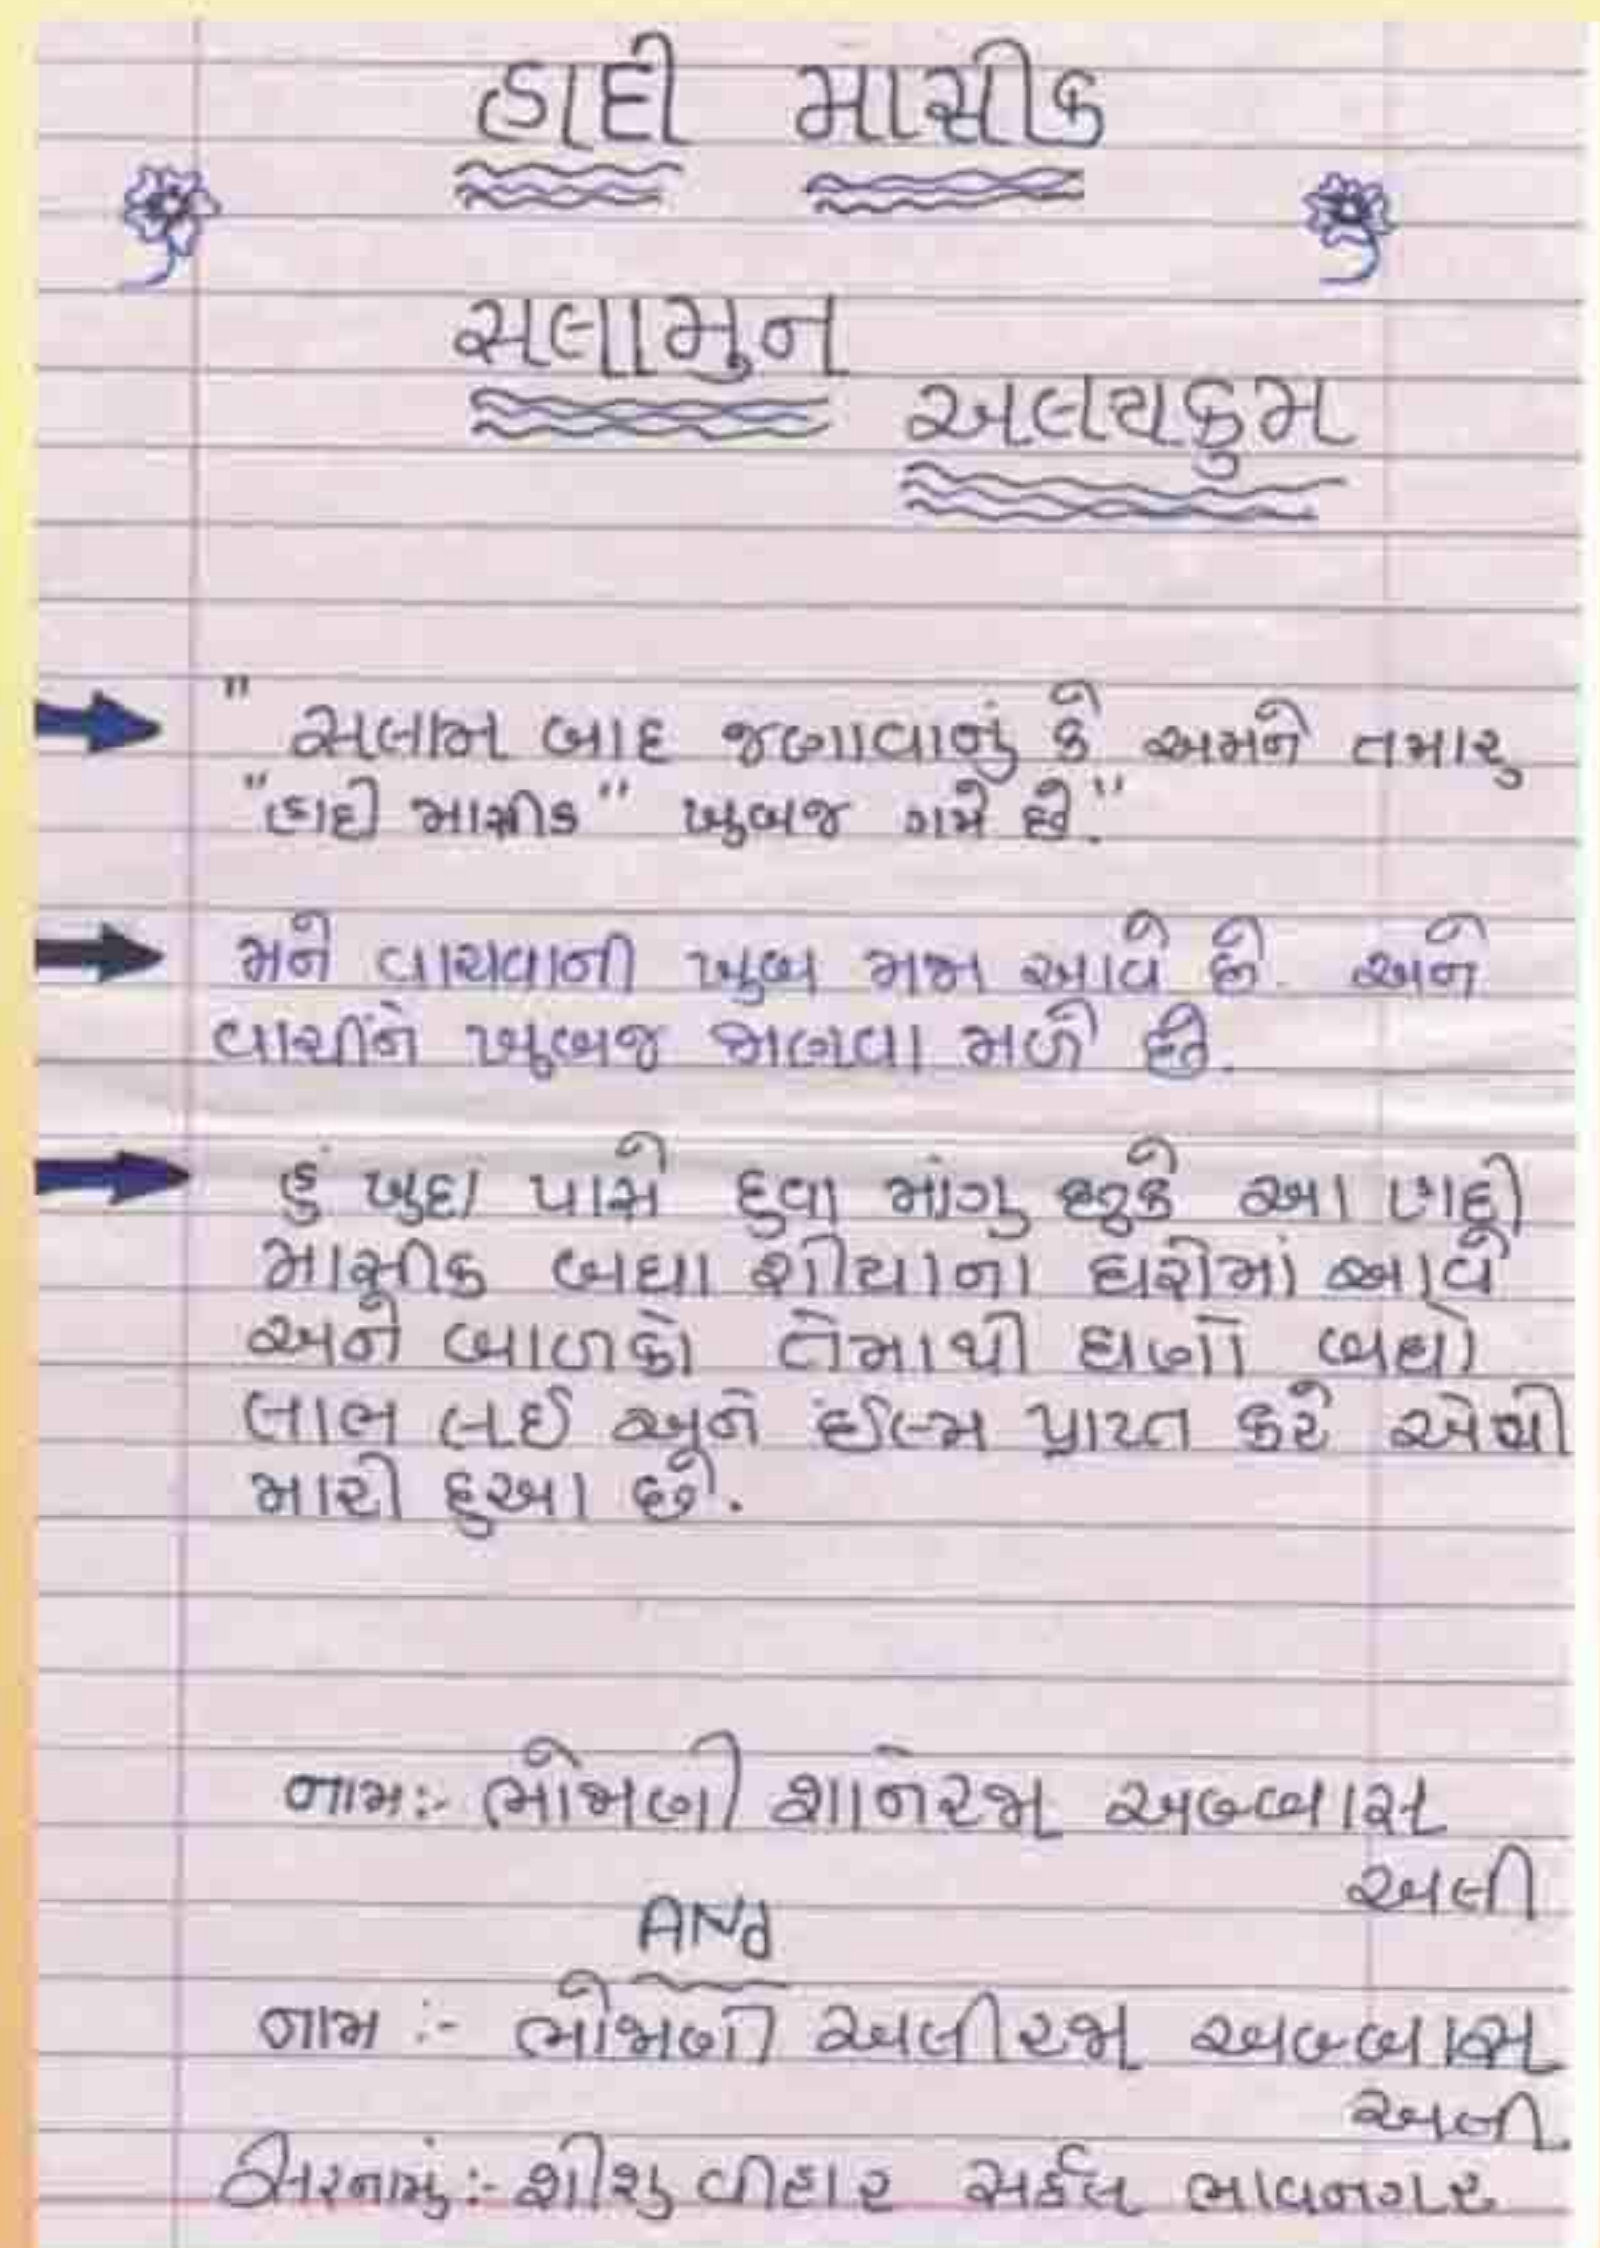 હાદી માસીક
સલામુન
અલયકુમ
" સલામ બાદ જણાવાનું કે અમને તમારુ
"હાદી માસીક" ખુબજ ગમે છે."
મને વાચવાની ખુબ મજા આવે છે. અને
વાચીને ખુબજ જાણવા મળે છે.
હું ખુદા પાસે દુવા માંગુ છુકે આ હાદી
માસીક બધા શીયાના ઘરોમાં આવે
અને બાળકો તેમાથી ઘણો બધો
લાભ લઈ અને ઈલ્મ પ્રાપ્ત કરે એવી
મારી દુઆ છે.
નામ:- ભોજાણી શાનેરજા અબ્બાસ
અલી
ANd
નામ :- ભોજાણી અલીરજા અબ્બાસ
અલી
સરનામું:- શીશુ વીહાર સર્કલ ભાવનગર